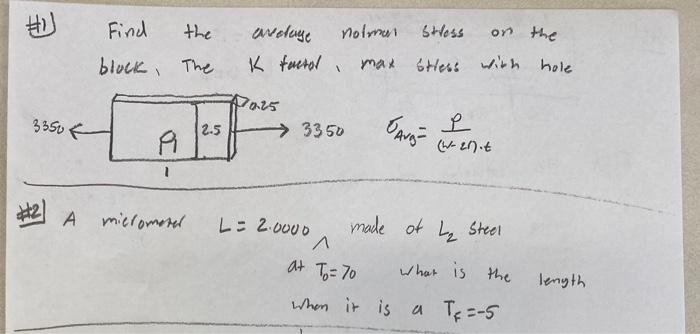 #1) Find the average normal stress on the
block, The K factor, max stress with hole
0.25
3350 2.5 3350 σAvg = P / (w-2r)·t
1
#2) A micrometer L = 2.0000 made of L2 Steel
at T₀=70 what is the length
when it is a TF=-5